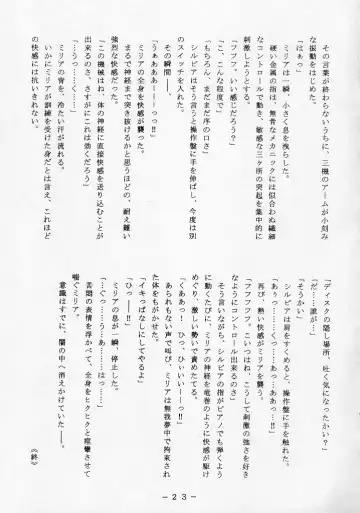 その言葉が終わらないうちに、三機のアームが小刻み
な振動をはじめた。
「はぁっ」
ミリアは一瞬、小さく息を洩らした。
硬い金属の指は、無骨なメカニックには似合わぬ繊細
なコントロールで動き、敏感な三ヶ所の突起を集中的に
刺激しようとする。
「フフフ、いい感じだろう?」
「こ、こんな程度で」
「もちろん、まだまだ序の口さ」
シルビアはそう言うと操作盤に手を伸ばし、今度は別
のスイッチを入れた。
その瞬間――。
「うああああーーーっっ!!」
ミリアの全身を快感が襲った。
まるで神経まで突き抜けるかと思うほどの、耐え難い
強烈な快感だった。
「この機械はね、体の神経に直接快感を送り込むことが
出来るのさ、さすがにこれは効くだろう」
「…うっ……く……」
ミリアの背を、冷たい汗が流れる。
いかにミリアが訓練を受けた身だとは言え、これほど
の快感には抗いきれない。
「ディスクの隠し場所、吐く気になったかい?」
「だ……誰が…」
「そうかい」
シルビアは肩をすくめると、操作盤に手を触れた。
「あぅっ………くっ……あっ…ああっ…!!」
再び、熱い快感がミリアを襲う。
「フフフフ。こいつはね、こうして刺激の強さを好き
なようにコントロール出来るのさ」
そう言いながら、シルビアの指がピアノでも弾くよう
に動くたびに、ミリアの神経を竜巻のように快感が駆け
めぐり、激しい勢いで責めたてる。
「くああっ…ひっ、ひぃいいーーっ!!」
あられもない声で叫び、ミリアは無我夢中で拘束され
た体をもがかせた。
「イキっぱなしにしてやるよ」
「ひっ――!!」
ミリアの息が一瞬、停止した。
「…ぐっ……う…あ……はっ……」
苦悶の表情を浮かべて、全身をヒクヒクと痙攣させて
喘ぐミリア。
意識はすでに、闇の中へ消えかけていた――。
《終》
－23－